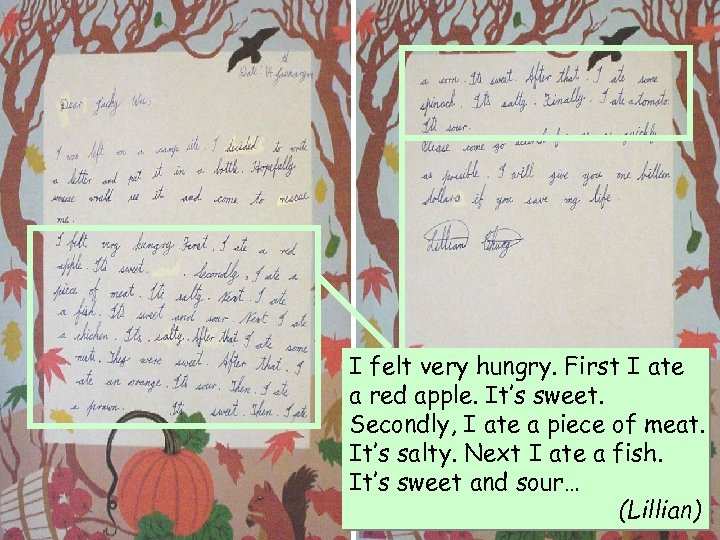 Date: 18 January
Dear Jacky Wu:
I was left on a camp site. I decided to write
a letter and put it in a bottle. Hopefully
someone would see it and come to rescue
me.
I felt very hungry. First, I ate a red
apple. It's sweet. Secondly, I ate a
piece of meat. It's salty. Next I ate
a fish. It's sweet and sour. Next I ate
a chicken. It's salty. After that I ate some
nuts. They were sweet. After that, I
ate an orange. It's sour. Then, I ate
a prawn. It's sweet. Then, I ate
a corn. It's sweet. After that, I ate some
spinach. It's salty. Finally, I ate a tomato.
It's sour.
Please come quickly
as possible. I will give you one billion
dollars if you save my life.
Lillian
I felt very hungry. First I ate
a red apple. It's sweet.
Secondly, I ate a piece of meat.
It's salty. Next I ate a fish.
It's sweet and sour…
(Lillian)